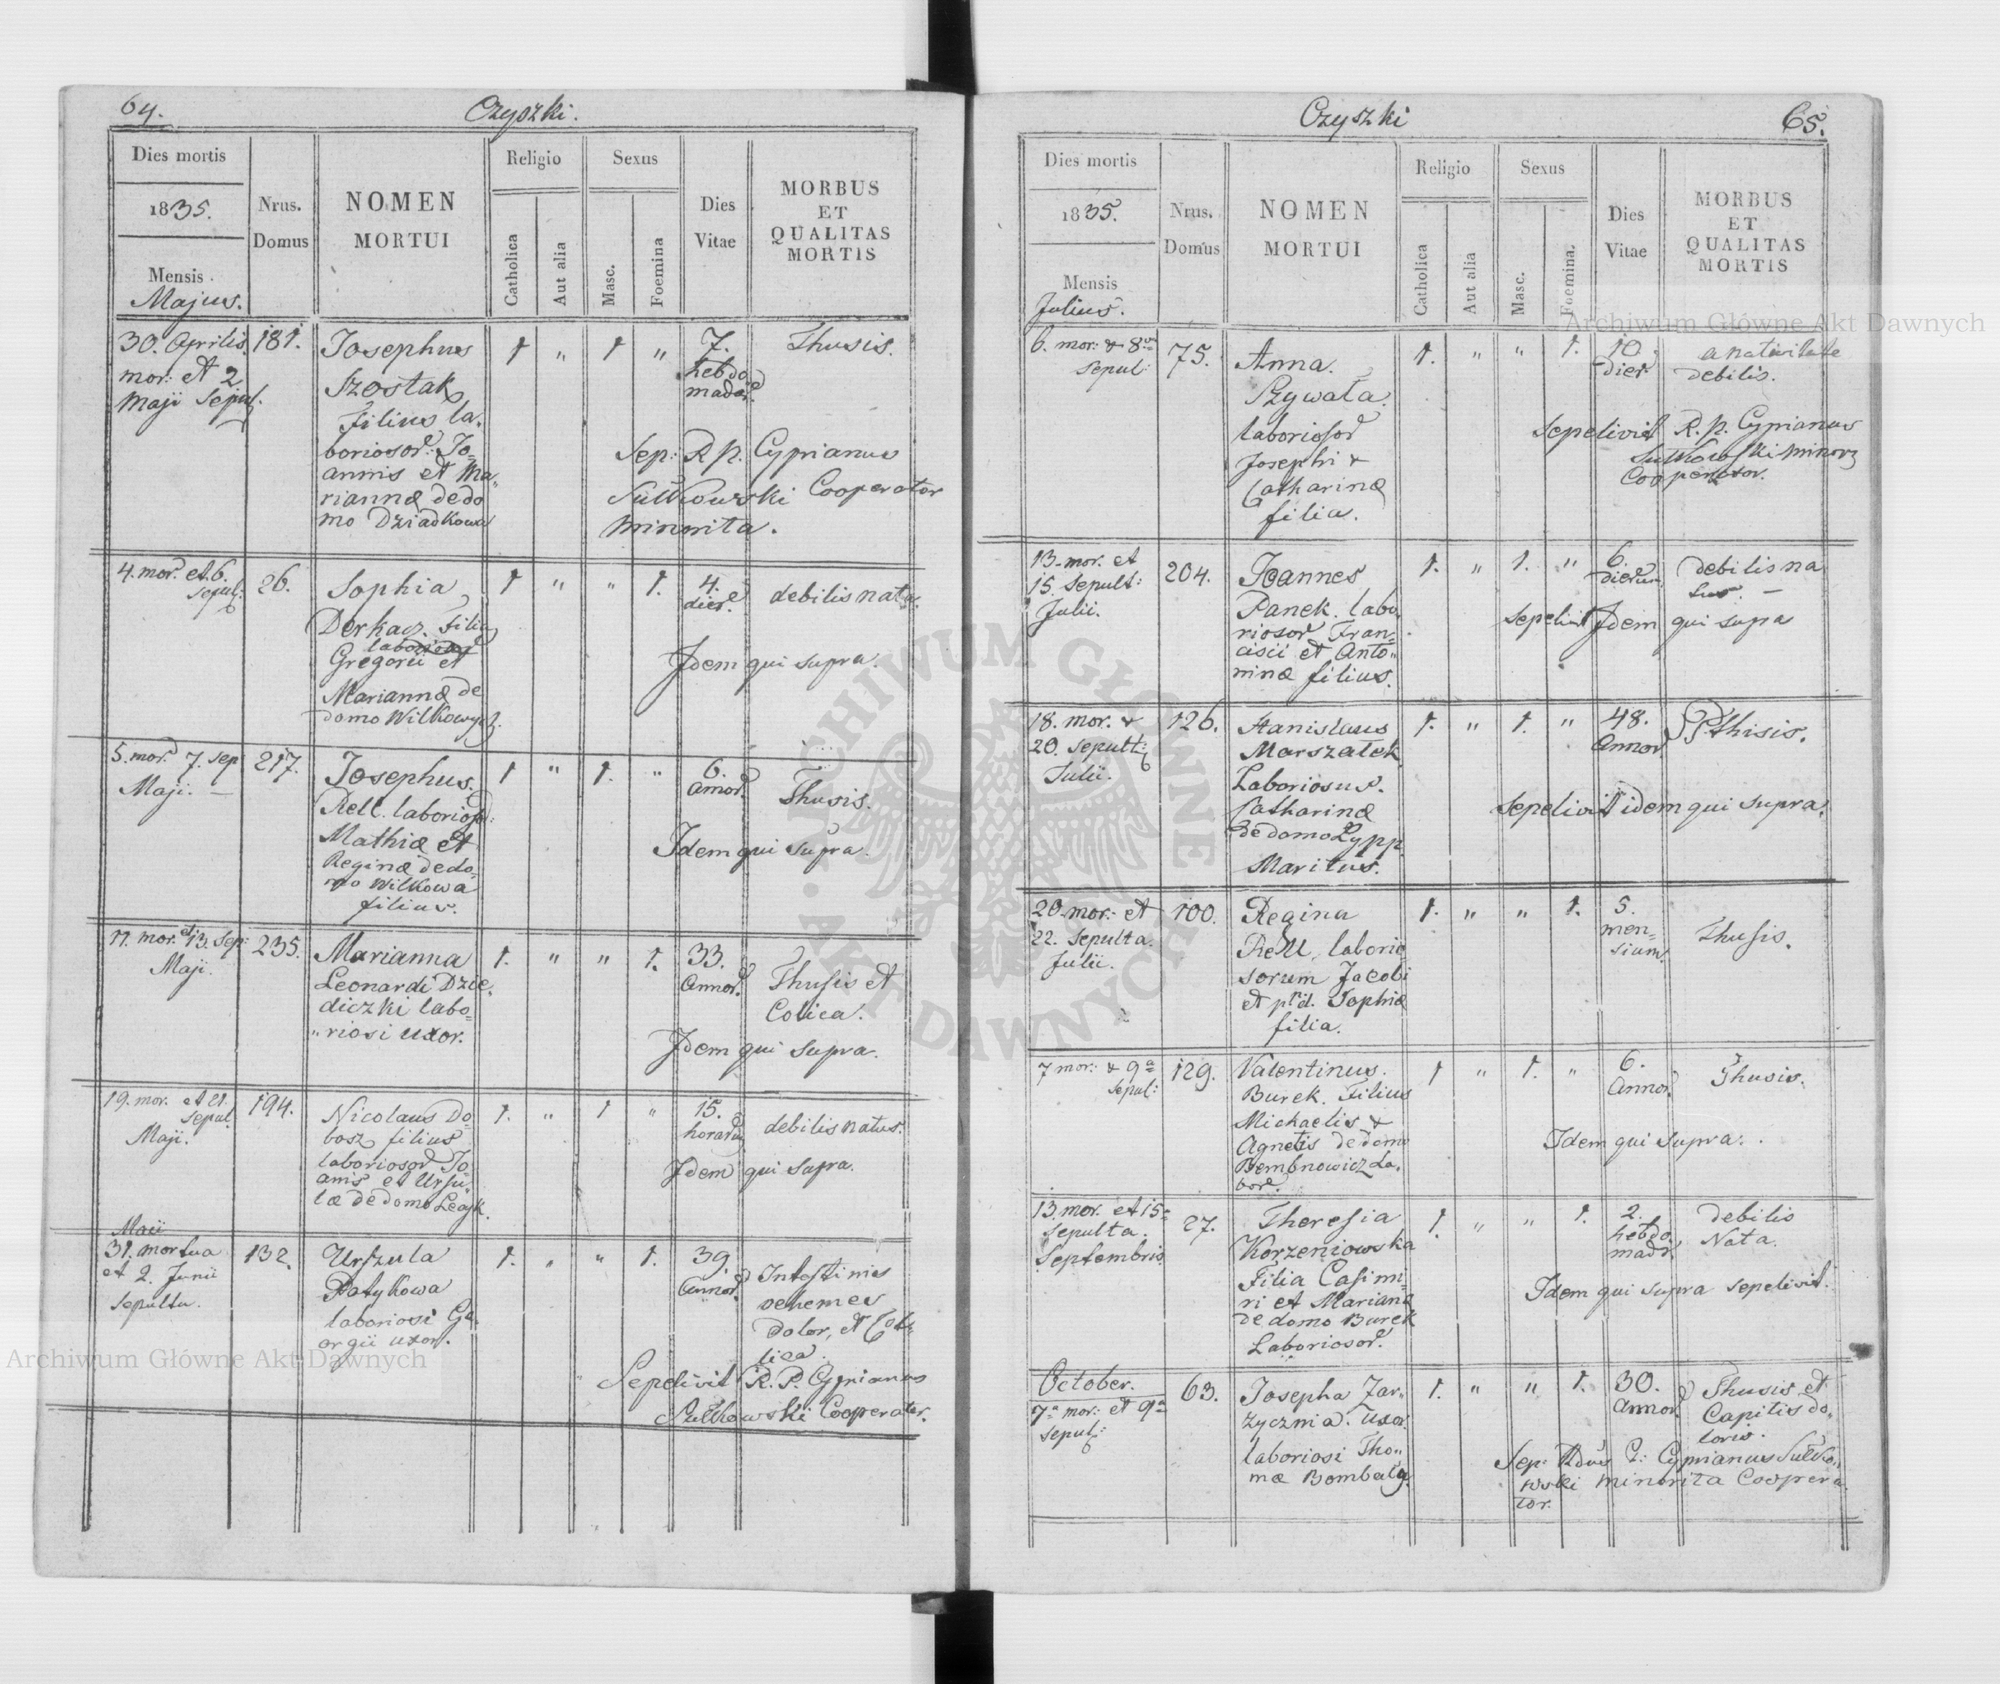 64.
Czyszki.
Dies mortis
1835.
Mensis
Majus.
Nrus.
Domus
NOMEN
MORTUI
Religio
Catholica
Aut alia
Sexus
Masc.
Foemina
Dies
Vitae
MORBUS
ET
QUALITAS
MORTIS
30. Aprilis
mor: et 2
Maji Sepul.
181.
Josephus
Szostak
Filius la-
boriosor: Jo-
annis et Ma-
riannæ de do
mo Dziadkowa
1 " 1 "
7.
hebdo
madar.
Thusis.
Sep: R. P. Cyprianus
Sułkowski Cooperator
minorita.
4. mor. et 6.
Sepul:
26.
Sophia
Derkacz. filia
laborior
Gregorii et
Mariannæ de
domo Wilkowych.
1 " " 1.
4.
dier.
debilis nata.
Idem qui supra.
5. mor. 7. sep
Maji. —
217.
Josephus.
Rell. laborios:
Mathiæ et
Reginæ de do-
mo Wilkowa
filius.
1 " 1. "
6.
annor.
Thusis.
Idem qui supra.
11. mor. et 13. sep:
Maji.
235.
Marianna
Leonardi Dzie-
diczki labo-
"riosi uxor.
1. " " 1.
33.
annor.
Thusis et
Colica.
Idem qui supra.
19. mor. et 21.
Sepul.
Maji.
194.
Nicolaus Do-
bosz filius
laboriosor Jo-
anis et Ursu-
læ de domo
1. " 1 "
15.
horarum
debilis natus.
Idem qui supra.
Maii
31. mortua
et 2. Junii
sepulta.
132.
Urszula
Patykowa
laboriosi Ge-
orgii uxor.
1. " " 1.
39.
annor.
Intestinis
vehemes
dolor, et Co-
lica.
Sepelivit R. P. Cyprianus
Sułkowski Cooperator.
Czyszki
65.
Dies mortis
1835.
Mensis
Julius.
Nrus.
Domus
NOMEN
MORTUI
Religio
Catholica
Aut alia
Sexus
Masc.
Foemina.
Dies
Vitae
MORBUS
ET
QUALITAS
MORTIS
6. mor: & 8
Sepul:
75.
Anna
Szywała.
laboriosor
Josephi &
Catharinæ
filia.
1. " " 1.
10.
dier.
a nativitate
debilis.
Sepelivit R. P. Cyprianus
Sułkowski minor
Cooperator.
13. mor. et
15. Sepult:
Julii.
204.
Joannes
Panek. labo-
riosor Fran-
cisci et Anto-
ninæ filius.
1. " 1. "
6.
dierum
debilis na
tus. —
Sepelivit Idem qui supa
18. mor. &
20. sepult:
Julii.
126.
Stanislaus
Marszałek
Laboriosus.
Catharinæ
de domo Lypp.
Maritus.
1. " 1. "
48.
annor.
Pthisis.
Sepelivit idem qui supra.
20. mor: et
22. sepulta.
Julii.
100.
Regina
Rell, laborio
sorum Jacobi
et Sophiæ
filia.
1. " " 1.
5.
men-
sium.
Thusis.
7 mor: & 9a
sepul:
129.
Valentinus.
Burek. Filius
Michaelis &
Agnetis de domo
Bembnowicz La-
bor.
1 " 1. "
6.
Annor.
Thusis.
Idem qui supra.
13. mor. et 15
sepulta.
Septembris
27.
Theresia
Korzeniowska
Filia Casimi-
ri et Marianæ
de domo Burek
Laboriosor.
1. " " 1.
2.
hebdo.
madr.
Debilis
Nata.
Idem qui supra sepelivit.
October.
7a mor: et 9a
sepul:
63.
Josepha Jar-
zycznia. uxor
laboriosi Tho-
mæ Bombała.
1. " " 1.
30.
annor.
Thusis et
Capitis do-
loris.
Sep: Rdus P: Cyprianus Sułko-
wski minorita Coopera
tor.
Archiwum Główne Akt Dawnych
Archiwum Główne Akt Dawnych
ARCHIWUM GŁÓWNE AKT DAWNYCH